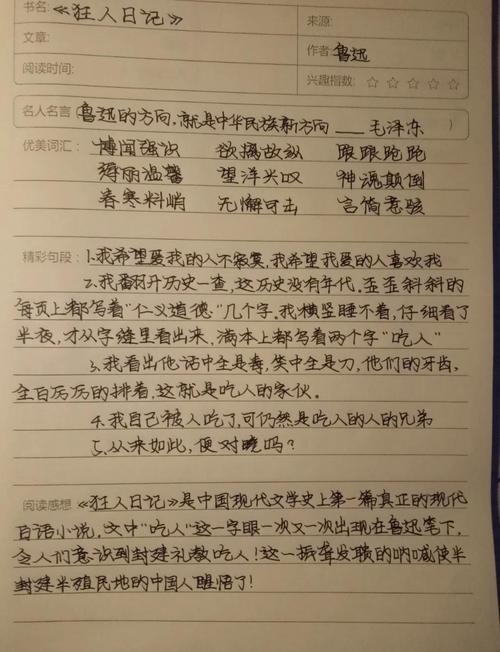 书名:《狂人日记》
来源:
文章:
作者:鲁迅
阅读时间:
兴趣指数:☆ ☆ ☆ ☆ ☆
名人名言(鲁迅的方向,就是中华民族新方向 ——毛泽东 )
优美词汇: 博闻强识 欲擒故纵 踉踉跄跄
绮丽温馨 望洋兴叹 神魂颠倒
春寒料峭 无懈可击 言简意骇
精彩句段:1.我希望爱我的人不寂寞,我希望我爱的人喜欢我
2.我翻开历史一查,这历史没有年代,歪歪斜斜的
每页上都写着“仁义道德”几个字,我横竖睡不着,仔细看了
半夜,才从字缝里看出来,满本上都写着两个字“吃人”
3.我看出他话中全是毒,笑中全是刀,他们的牙齿,
全白厉厉的排着,这就是吃人的家伙。
4.我自己被人吃了,可仍然是吃人的人的兄弟
5.从来如此,便对晓吗?
阅读感想《狂人日记》是中国现代文学史上第一篇真正的现代
白话小说,文中“吃人”这一字眼一次又一次出现在鲁迅笔下,
令人们意识到封建礼教吃人!这一振聋发聩的呐喊使半
封建半殖民地的中国人醒悟了!